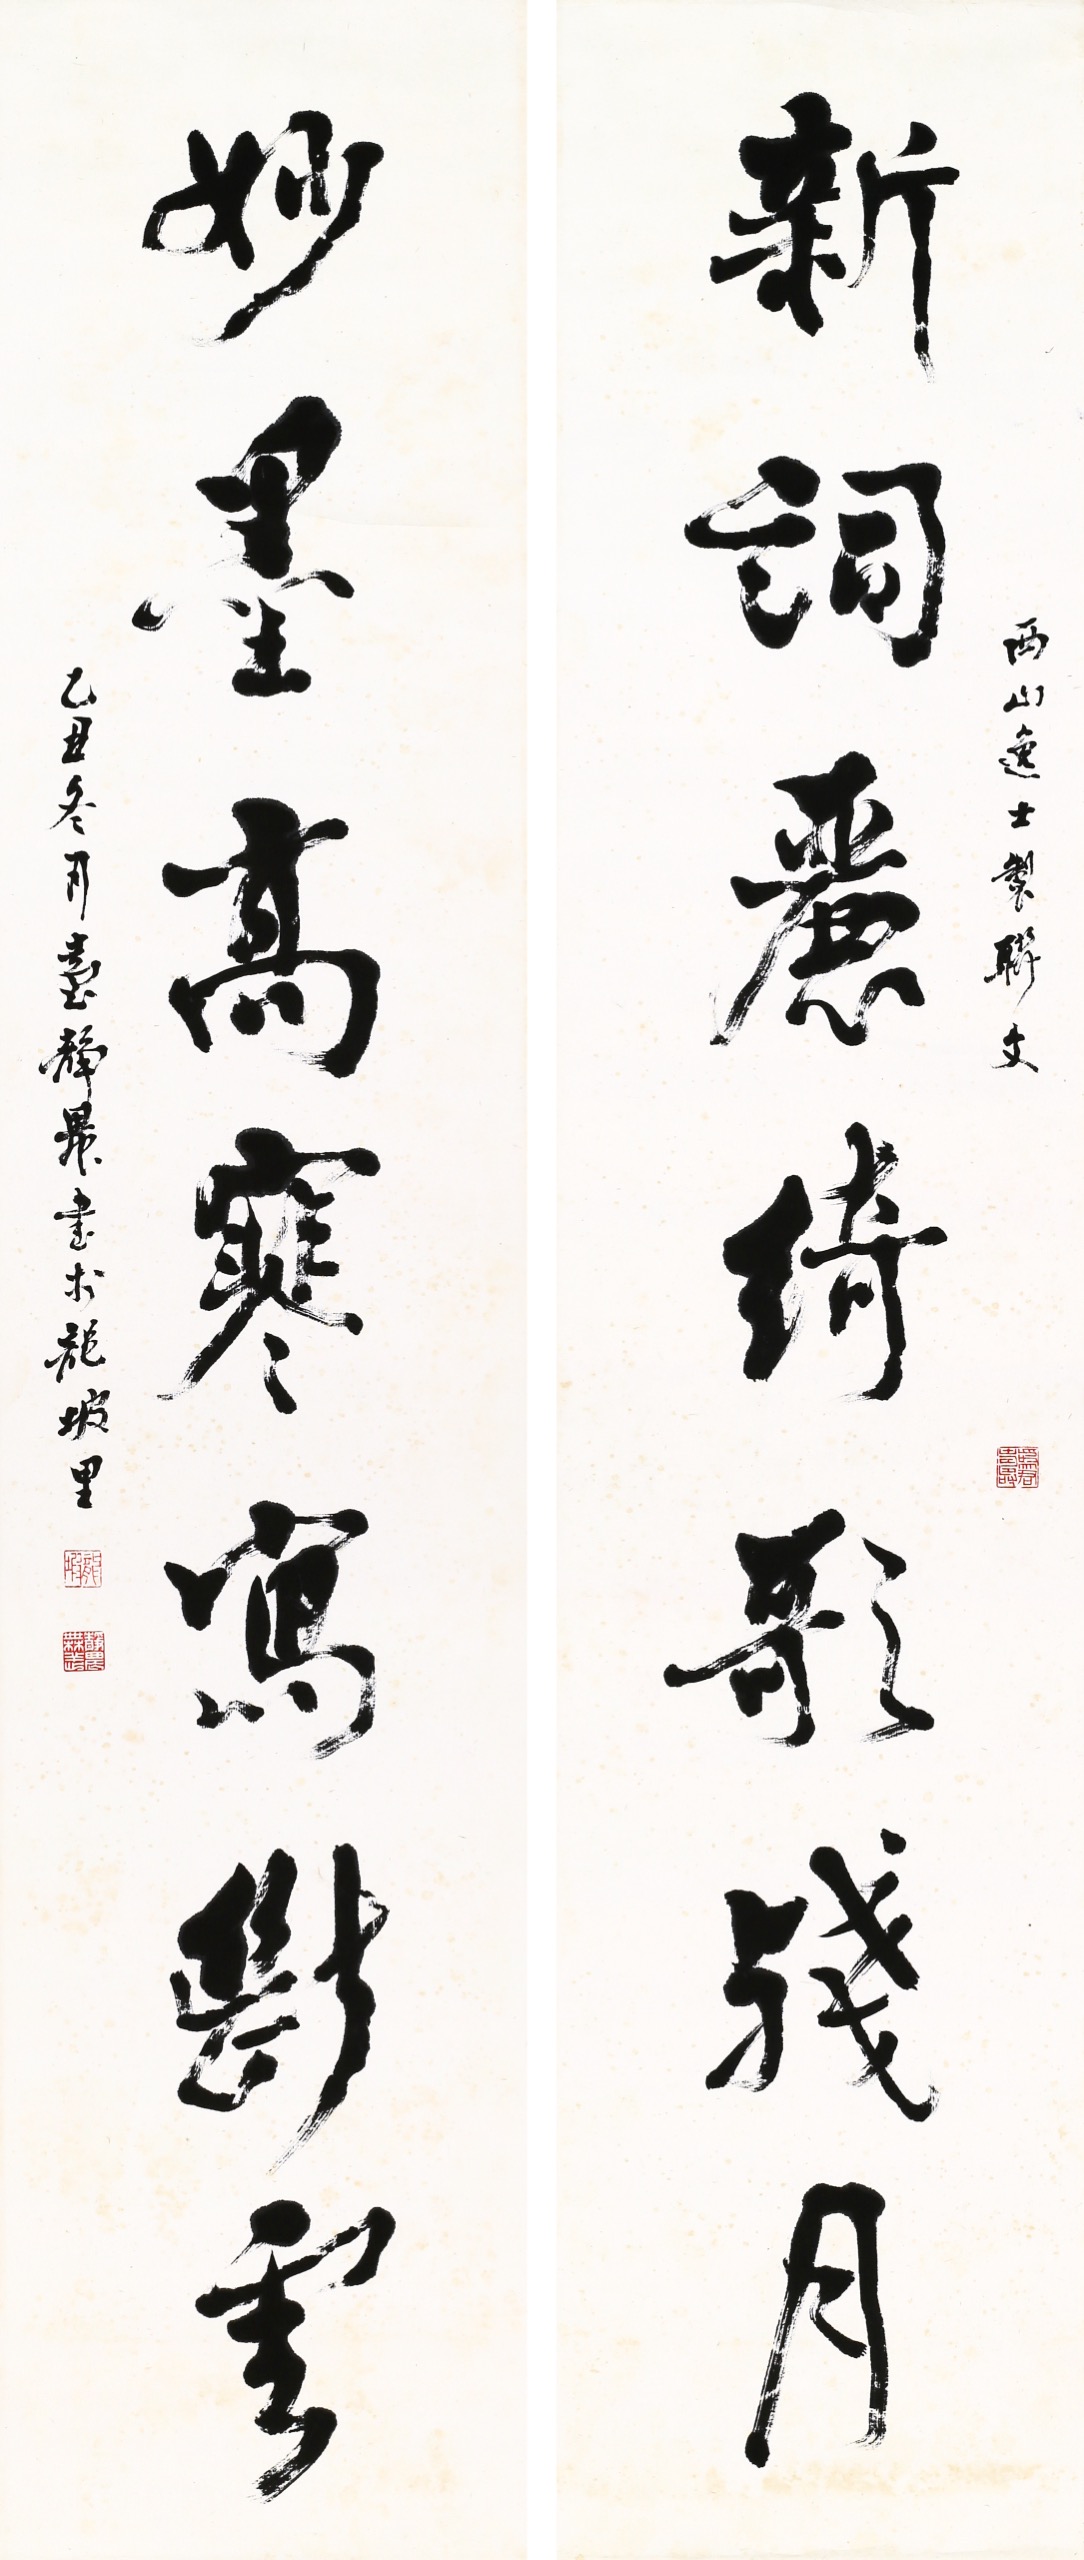 新詞麗綺歌殘月
西山逸士製聯文
妙墨高寒寫斷雲
乙丑冬月臺靜農書於龍坡里
龍坡
靜農無恙